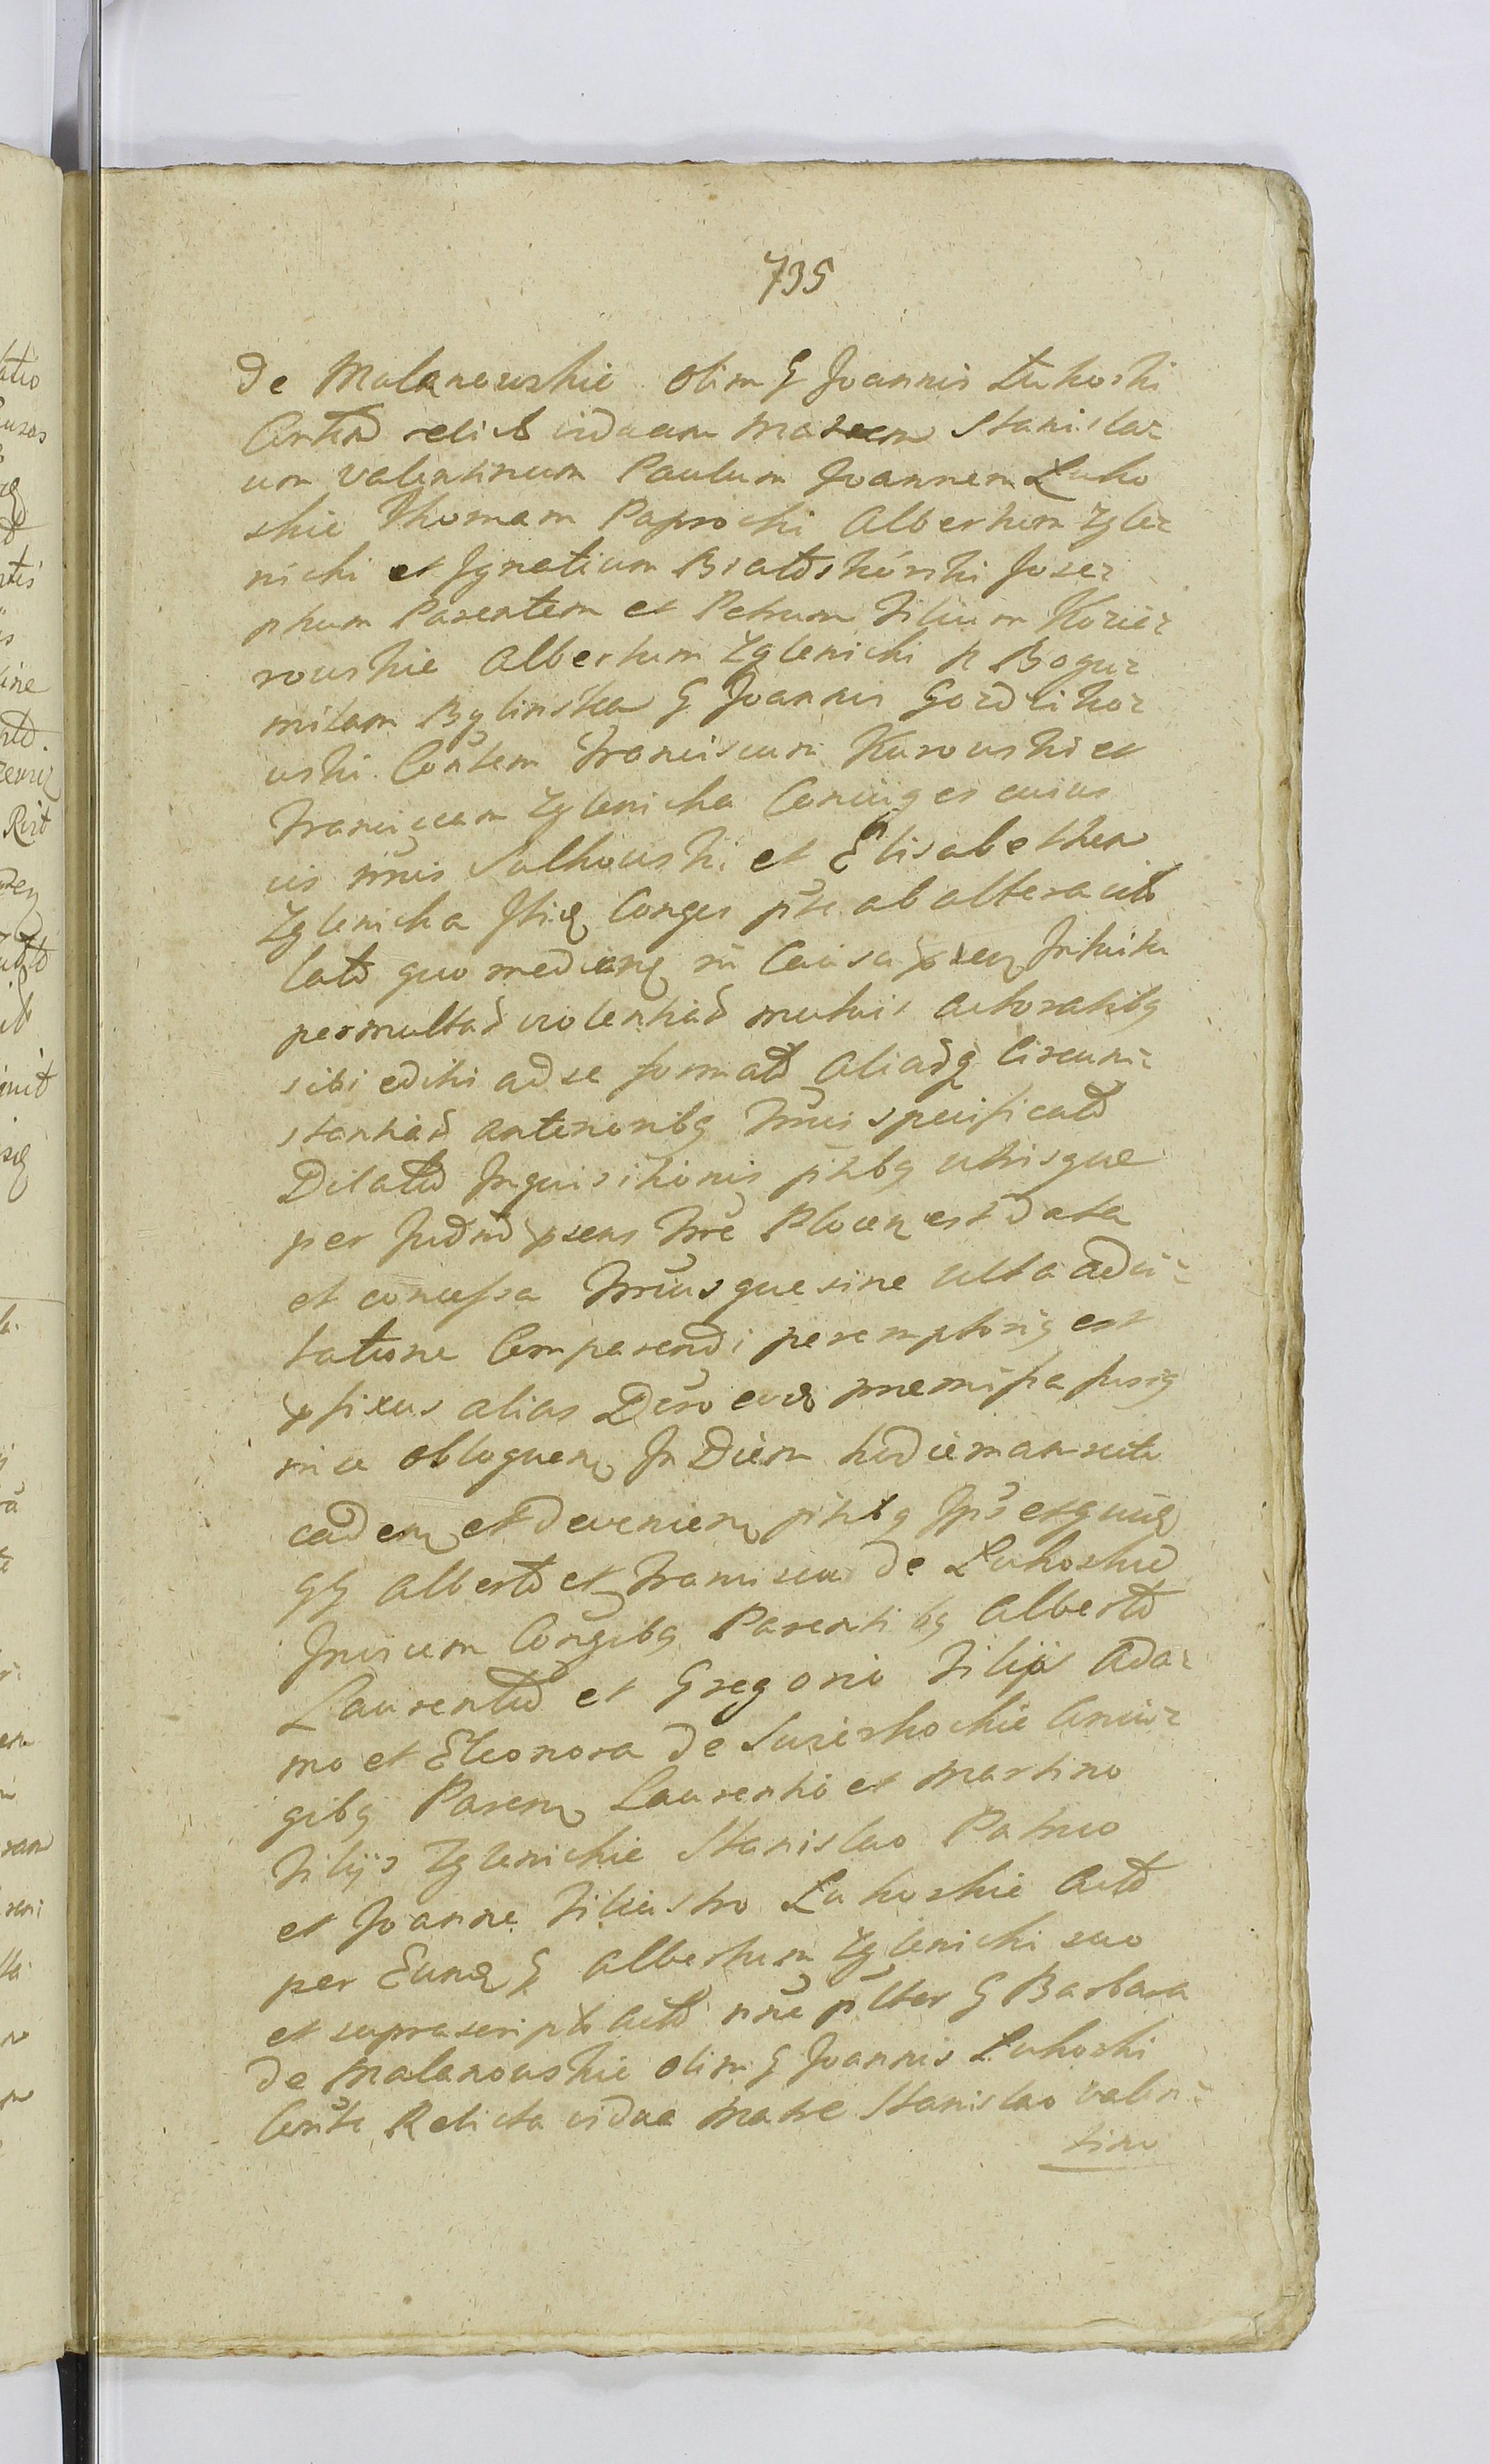 735
de Malanowskie olim G Joannis Łukoski
Conthd relict viduam Matrem Stanisla=
um Valentinum Paulum Joannem Łuko
skie Thomam Paprocki Albertum Zgle=
nicki et Ignatium Białoskórski Jose=
phum Parentem et Petrum Filium Kozie=
rowskie Albertum Zglenicki N Bogu=
milam Bylinska G Joannis Gozdziko=
wski Contem Franciscum Kurowski et
Franciscam Zglenicka Coniuges
Sulkowski et Elisabetham
Zglenicka Conges pte ab altera
latd quo medianq in Causa Intuitu
per multas violentias mutuis actoratibq
sibi edití ad se format Aliasq Circum=
stantias anterioribq Trmis specificatd
Dilatio Inquisitionis ptibq utrisque
per Judm psens Trre Plocen est data
et concessa Trmusque sine ulla adci=
tatione Comparendi peremptorig est
pfixus alias Dcro eoq praemissa fusig
in se obloquenq In Diem hodiernam rite
cadenq et devenienq ptibq Ipis exquiq
GG Albertd et Francisca de Łukoskie
Invicem Congibq Parentibq Albertd
Laurentid et Gregorio Filijs Ada=
mo et Eleonora de Suzierkockie Coniu=
gibq Parenq Laurentio et Martino
Filijs Zglenickie Stanislao Patruo
et Joanne Filiastro Łukoskie Actd
per Eunq G Albertum Zglenicki suo
et suprascript Actd nne plter G Barbara
de Malanowskie olim G Joannis Łukoski
Conte Relicta vidua Matre Stanislao Valen=
tino